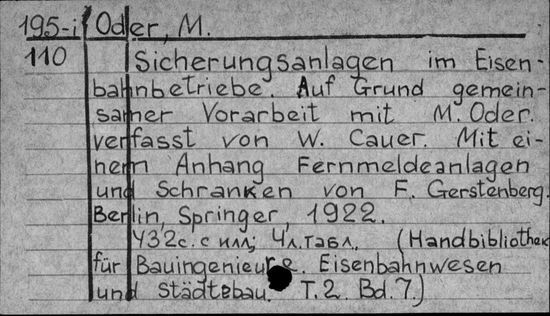 195-i Oder, M.
110 Sicherungsanlagen im Eisen-
bahnbetriebe. Auf Grund gemein-
samer Vorarbeit mit M. Oder.
verfasst von W. Cauer. Mit ei-
nem Anhang Fernmeldeanlagen
und Schranken von F. Gerstenberg.
Berlin, Springer, 1922.
432 с. с илл; 4 л. табл. (Handbibliothek
für Bauingenieure. Eisenbahnwesen
und Städtebau. T.2. Bd.7.)